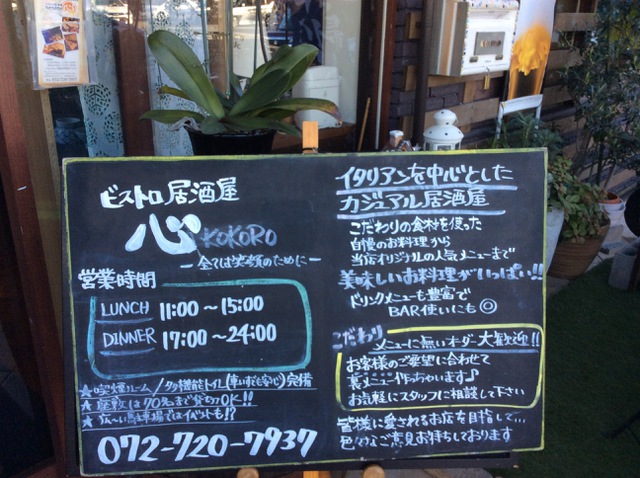 ビストロ居酒屋
心 KOKORO
ー全ては笑顔のためにー
営業時間
LUNCH 11:00～15:00
DINNER 17:00～24:00
★喫煙ルーム/多機能トイレ(車いすも安心)完備
★座敷は70名まで貸切OK!!
★広〜い駐車場ではイベントも!?
072-720-7937
イタリアンを中心とした
カジュアル居酒屋
こだわりの食材を使った
自慢のお料理から
当店オリジナルの人気メニューまで
美味しいお料理がいっぱい!!
ドリンクメニューも豊富で
BAR使いにも◎
こだわり
メニューに無いオーダー大歓迎!!
お客様のご要望に合わせて
裏メニュー作っちゃいます♪
お気軽にスタッフに相談して下さい
皆様に愛されるお店を目指して…
色々なご意見お待ちしております